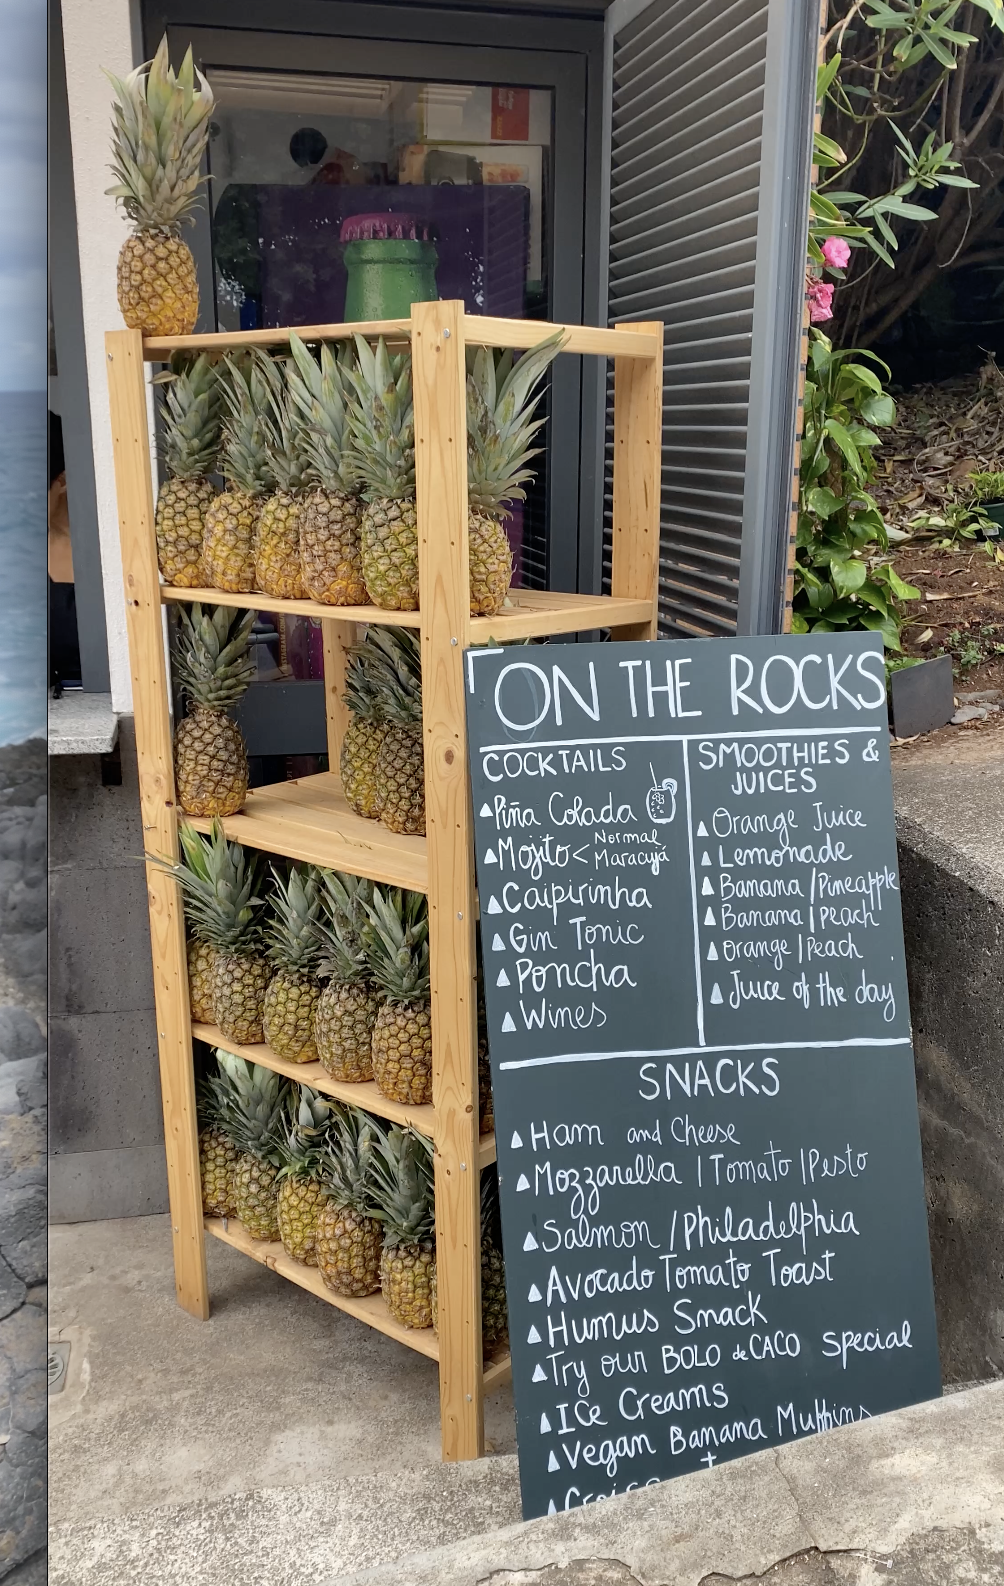 ON THE ROCKS
COCKTAILS
Piña Colada
Mojito < Normal
Maracujá
Caipirinha
Gin Tonic
Poncha
Wines
SMOOTHIES &
JUICES
Orange Juice
Lemonade
Banana / Pineapple
Banana | peach
Orange | Peach
Juice of the day
SNACKS
Ham and Cheese
Mozzarella | Tomato | Pesto
Salmon / Philadelphia
Avocado Tomato Toast
Humus Snack
Try our BOLO de CACO Special
Ice Creams
Vegan Banana Muffins